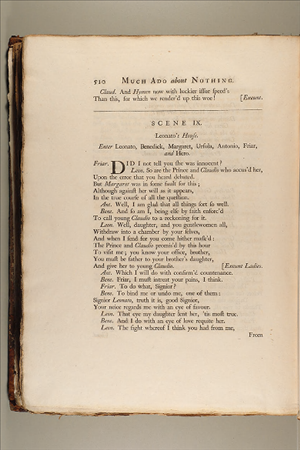 510 MUCH ADO about NOTHING.
Claud. And Hymen now with luckier issue speed's
Than this, for which we render'd up this woe! [Exeunt.
SCENE IX.
Leonato's House.
Enter Leonato, Benedick, Margaret, Ursula, Antonio, Friar,
and Hero.
Friar. DID I not tell you she was innocent?
Leon. So are the Prince and Claudio who accus'd her,
Upon the error that you heard debated.
But Margaret was in some fault for this;
Although against her will as it appears,
In the true course of all the question.
Ant. Well, I am glad that all things sort so well.
Bene. And so am I, being else by faith enforc'd
To call young Claudio to a reckoning for it.
Leon. Well, daughter, and you gentlewomen all,
Withdraw into a chamber by your selves,
And when I send for you come hither mask'd:
The Prince and Claudio promis'd by this hour
To visit me; you know your office, brother,
You must be father to your brother's daughter,
And give her to young Claudio. [Exeunt Ladies.
Ant. Which I will do with confirm'd countenance.
Bene. Friar, I must intreat your pains, I think.
Friar. To do what, Signior?
Bene. To bind me or undo me, one of them:
Signior Leonato, truth it is, good Signior,
Your neice regards me with an eye of favour.
Leon. That eye my daughter lent her, 'tis most true.
Bene. And I do with an eye of love requite her.
Leon. The sight whereof I think you had from me,
From